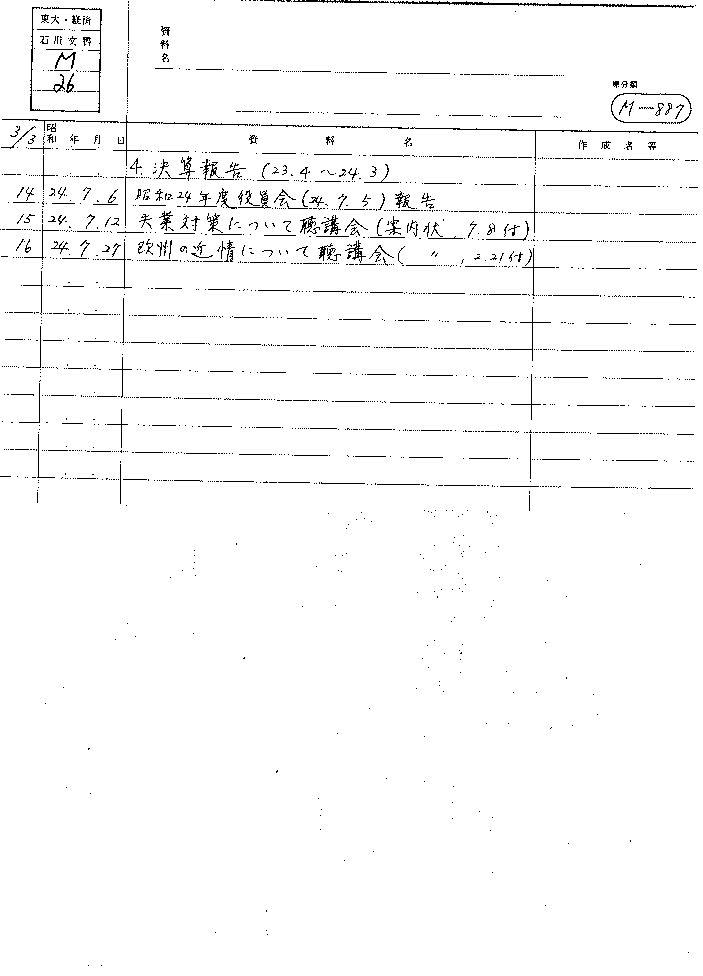 東大・経済
石川文書
M
26
資料名
原分類
M-887
3/3 昭和 年 月 日 資料名 作成者等
4. 決算報告 (23.4〜24.3)
14 24.7.6 昭和24年度役員会(24.7.5)報告
15 24.7.12 失業対策について聴講会(案内状, 7.8付)
16 24.7.27 欧州の近情について聴講会( 〃 , 2.21付)